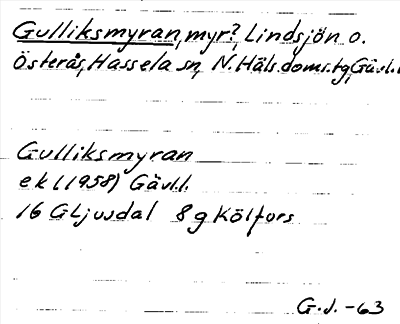 Gulliksmyran, myr?, Lindsjön o.
Österås, Hassela sn, N.Häls.doms.tg, Gävl.l.
Gulliksmyran
ek (1958) Gävl.l.
16 G Ljusdal 8 g Kölfors
G.J. -63